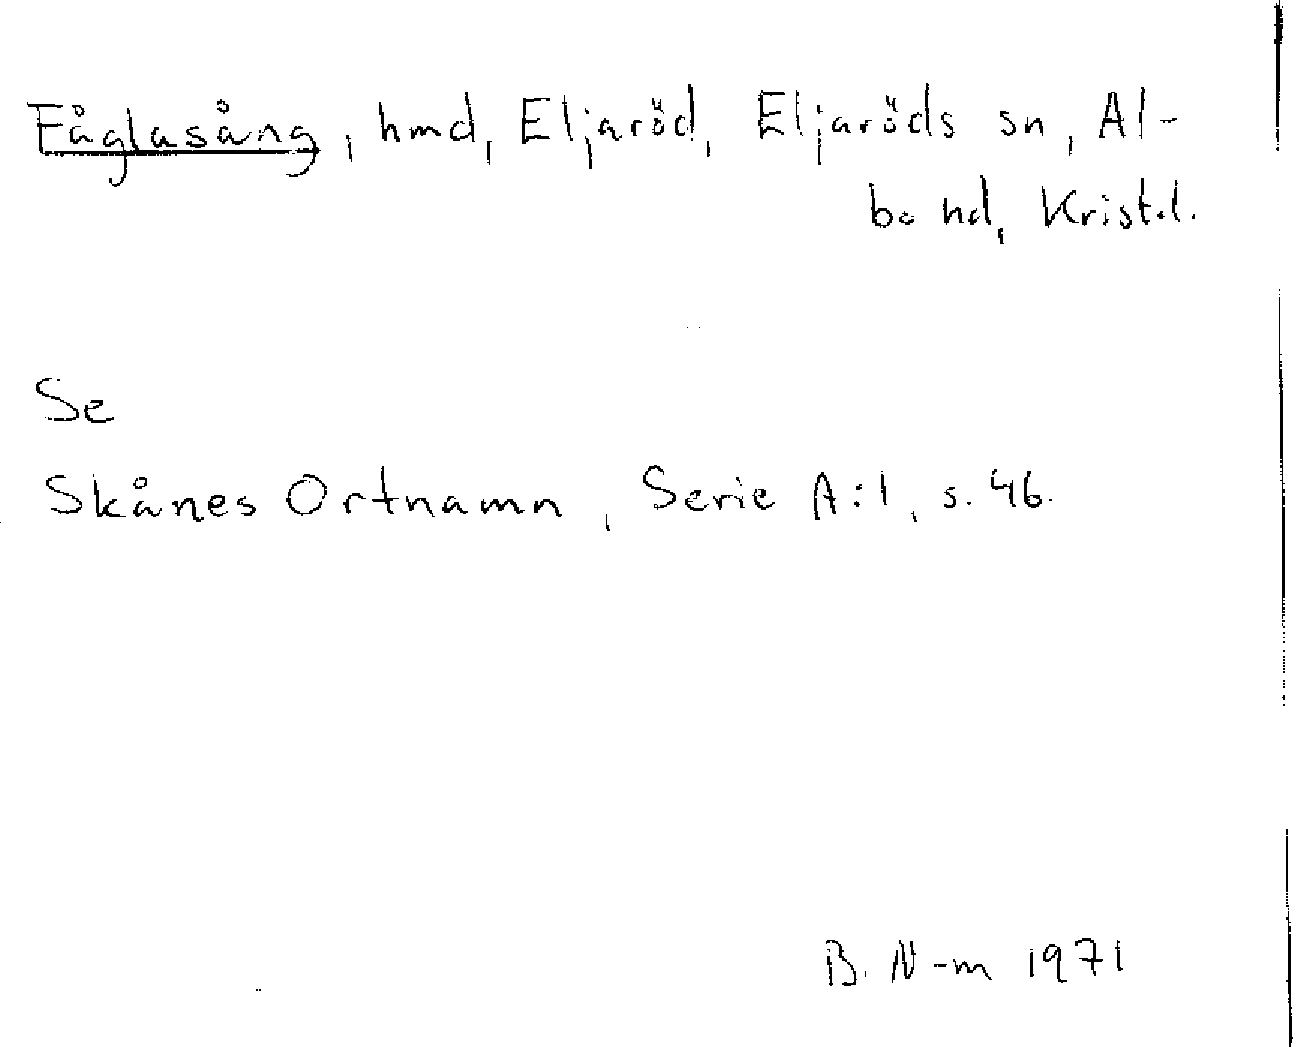 Fåglasång, hmd, Eljaröd, Eljaröds sn, Al-
bo hd, Krist.l.
Se
Skånes Ortnamn, Serie A:1, s. 46.
B. N-m 1971